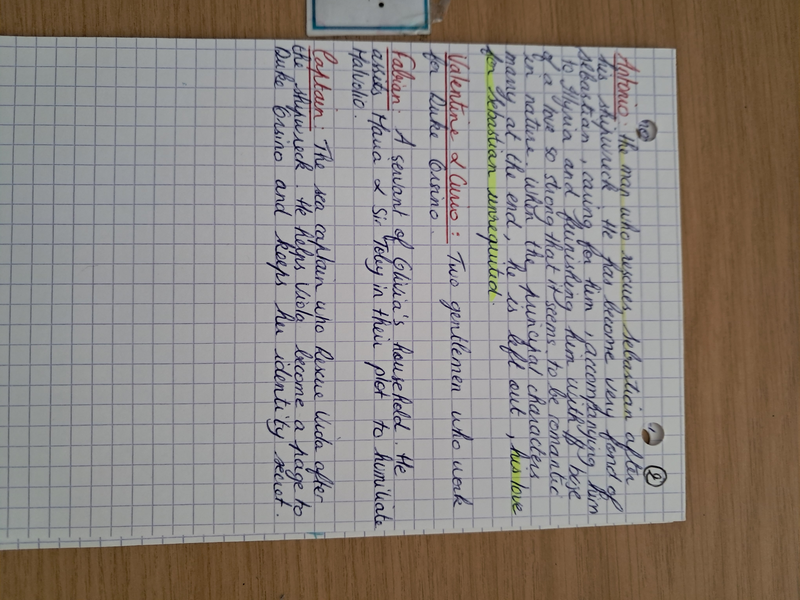 2
Antonio: the man who rescues Sebastian after
his shipwreck. He has become very fond of
Sebastian, caring for him, accompanying him
to Illyria and furnishing him with
of a love so strong that it seems to be romantic
in nature. When the principal characters
marry at the end, he is left out, his love
for Sebastian unrequited.
Valentine & Curio: Two gentlemen who work
for Duke Orsino.
Fabian: A servant of Olivia's household. He
assists Maria & Sir Toby in their plot to humiliate
Malvolio.
Captain: The sea captain who rescue Viola after
the shipwreck. He helps Viola become a page to
Duke Orsino and keeps her identity secret.